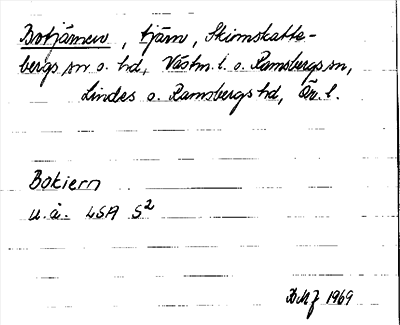 Botjärnen, tjärn, Skinnskatte-
bergs sn o. hd, Västm. l. o. Ramsbergs sn,
Lindes o. Ramsbergs hd, Ör. l.
Bokiern
u.å. LSA S2
1969